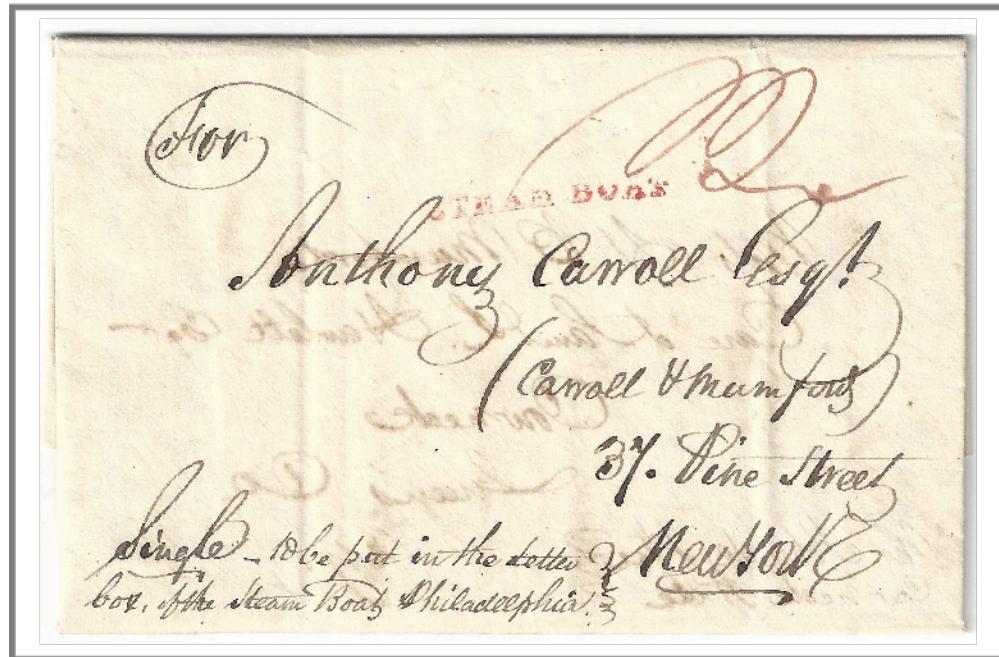 For
STEAM BOAT
Anthony Carroll Esqr.
(Carroll & Mumford)
37. Pine Street
New York
Single - To be put in the Letter
box, of the Steam Boat, Philadelphia.